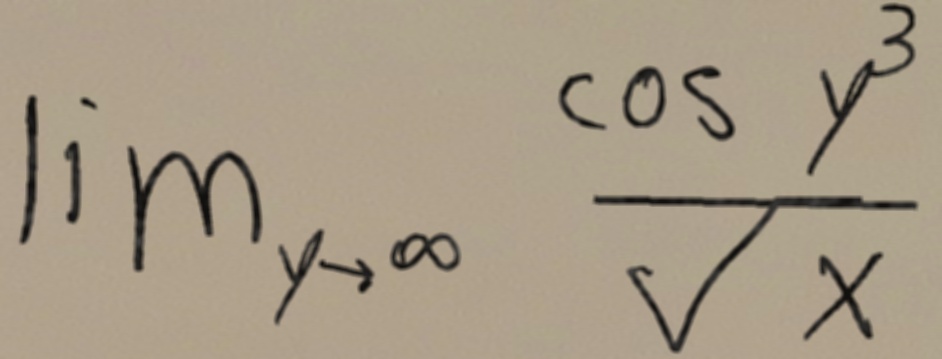 lim_{y→∞} \frac{cos y^3}{\sqrt{x}}